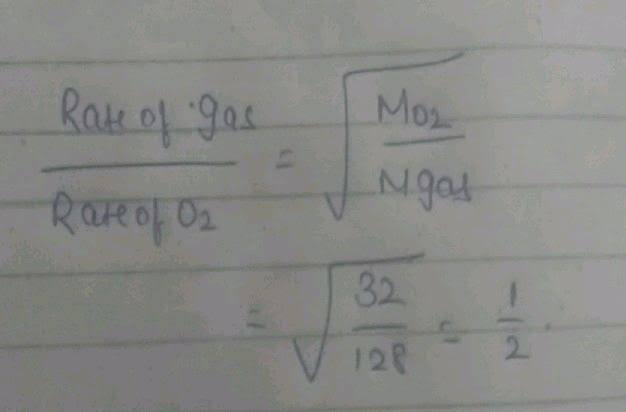 Rate of gas / Rate of O₂ = √(MO₂ / Mgas)
= √(32 / 128) = 1/2.